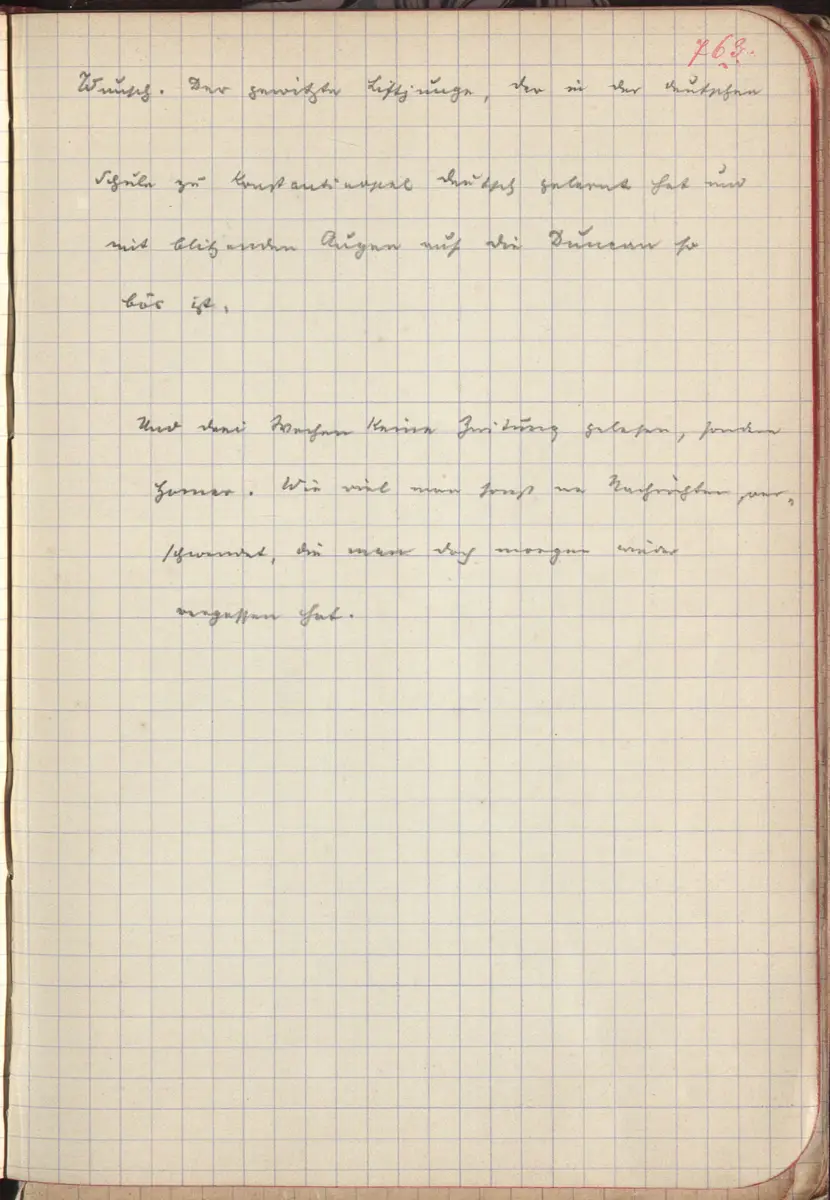 763.
Wunsch. Der gewitzte Liftjunge, der in der deutschen
Schule zu Konstantinopel deutsch gelernt hat und
mit blitzenden Augen auf die Duncan so
bös ist.
Und drei Wochen keine Zeitung gelesen, sondern
Homer. Wie viel man sonst an Nachrichten ver-
schwendet, die man doch morgen wieder
vergessen hat.